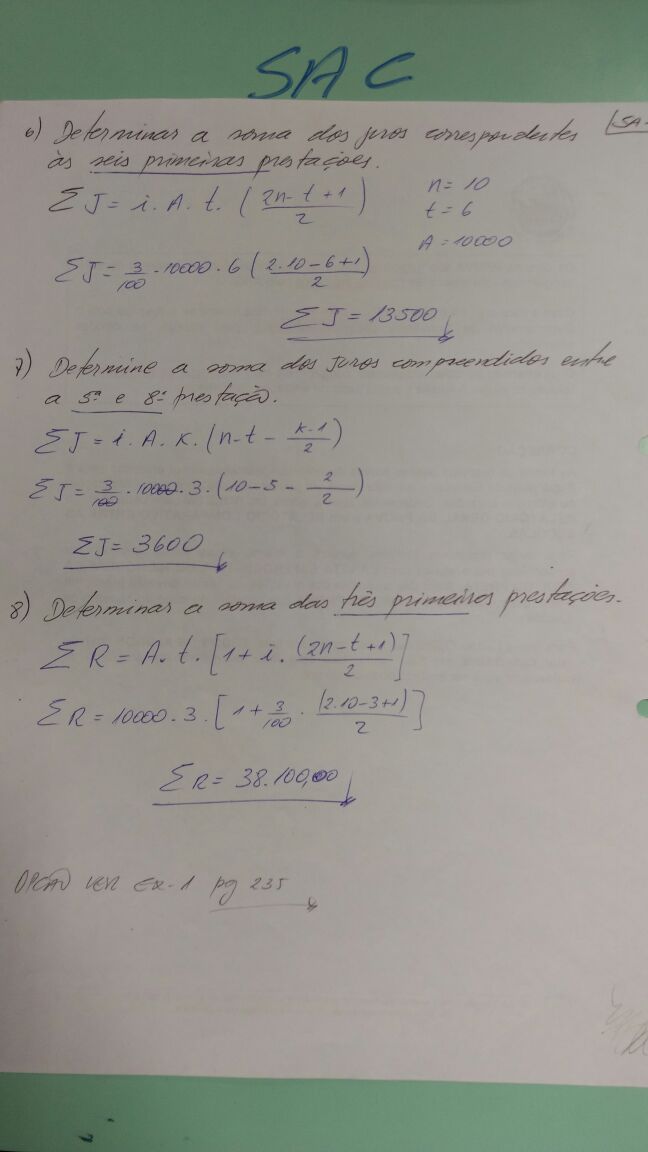 SAC
6) Determinar a soma dos juros correspondentes
às seis primeiras prestações.
Σ J = i. A. t. ( (2n - t + 1) / 2 )
n = 10
t = 6
A = 10000
Σ J = 3/100 . 10000 . 6 ( (2.10 - 6 + 1) / 2 )
Σ J = 13500
7) Determine a soma dos juros compreendidos entre
a 5ª e 8ª prestação.
Σ J = i. A. K. ( n - t - (K - 1) / 2 )
Σ J = 3/100 . 10000 . 3 . ( 10 - 5 - 2/2 )
Σ J = 3600
8) Determinar a soma das três primeiras prestações.
Σ R = A. t. [ 1 + i . (2n - t + 1) / 2 ]
Σ R = 10000 . 3 . [ 1 + 3/100 . (2.10 - 3 + 1) / 2 ]
Σ R = 38.100,00
OPÇÃO VER EX-1 pg 235